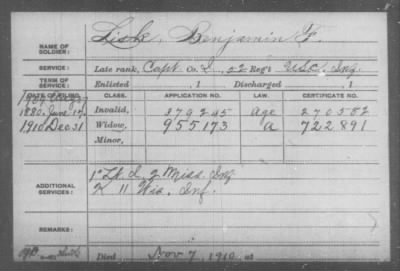 NAME OF SOLDIER: Lisk, Benjamin F.
SERVICE: Late rank, Capt Co. I, 52 Reg't U.S.C. Inf.
TERM OF SERVICE: Enlisted , 1 Discharged , 1
DATE OF FILING. CLASS. APPLICATION NO. LAW. CERTIFICATE NO.
1880 June 17 Invalid, 379245 Age 270582
1910 Dec 31 Widow, 955173 a 722891
Minor,
ADDITIONAL SERVICES: 1" Lt I, 2 Miss. Inf
K 11 Wis. Inf.
REMARKS:
Died Nov 7, 1910, at